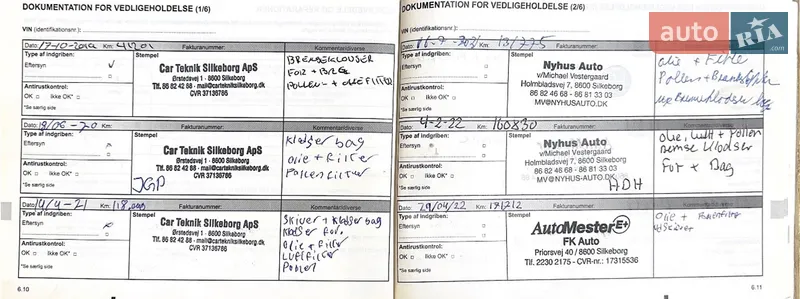 DOKUMENTATION FOR VEDLIGEHOLDELSE (1/6)
VIN (identifikationsnr.):
Dato: 17-10-2019 Km: 41201 Fakturanummer: Kommentardiverse
Type af indgriben: Stempel
Eftersyn
Car Teknik Silkeborg ApS
Ørstedsvej 1 - 8600 Silkeborg
Tlf. 86 82 42 68 - mail@carteknisksilkeborg.dk
CVR 37136786
BREMSEKLODSER
FOR + BAG
POLLEN- + OLIEFILTER
Antirustkontrol:
OK Ikke OK*
*Se særlig side
Dato: Km: Fakturanummer: Kommentardiverse
Type af indgriben: Stempel
Eftersyn
Car Teknik Silkeborg ApS
Ørstedsvej 1 - 8600 Silkeborg
Tlf. 86 82 42 68 - mail@carteknisksilkeborg.dk
CVR 37136786
Klodser bag
Olie + Filter
Pollenfilter
Antirustkontrol:
OK Ikke OK*
*Se særlig side
Dato: 14/4-21 Km: 118.000 Fakturanummer: Kommentardiverse
Type af indgriben: Stempel
Eftersyn
Car Teknik Silkeborg ApS
Ørstedsvej 1 - 8600 Silkeborg
Tlf. 86 82 42 68 - mail@carteknisksilkeborg.dk
CVR 37136786
Skiver + Klodser bag
Klodser for.
Olie + Filter
Luftfilter
Pollen
Antirustkontrol:
OK Ikke OK*
*Se særlig side
6.10
DOKUMENTATION FOR VEDLIGEHOLDELSE (2/6)
VIN (identifikationsnr.):
Dato: Km: 131775 Fakturanummer:
Type af indgriben: Stempel
Eftersyn
Nyhus Auto
v/Michael Vestergaard
Holmbladsvej 7, 8600 Silkeborg
86 81 56 28 - 86 81 33 03
MV@NYHUSAUTO.DK
olie + Filter
Pollen + Brændstoffilter
Antirustkontrol:
OK Ikke OK*
*Se særlig side
Dato: 4-2-22 Km: 160830 Fakturanummer: Kommentardiverse
Type af indgriben: Stempel
Eftersyn
Nyhus Auto
v/Michael Vestergaard
Holmbladsvej 7, 8600 Silkeborg
86 81 56 28 - 86 81 33 03
MV@NYHUSAUTO.DK
ADH
olie, luft + Pollen
Bremse Klodser
For + Bag
Antirustkontrol:
OK Ikke OK*
*Se særlig side
Dato: 29/04/22 Km: 171212 Fakturanummer: Kommentardiverse
Type af indgriben: Stempel
Eftersyn
AutoMester E+
FK Auto
Priorsvej 40 / 8600 Silkeborg
Tlf. 2230 2175 - CVR-nr.: 17315536
Olie + Pollenfilter
Antirustkontrol:
OK Ikke OK*
*Se særlig side
6.11
auto RIA .com